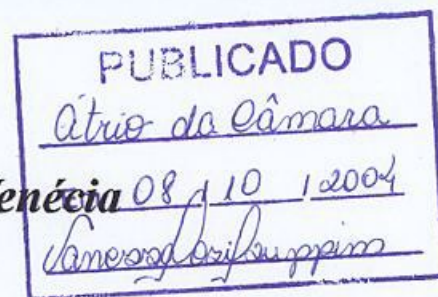 PUBLICADO
Átrio da Câmara
enécia 08 / 10 / 2004
Vanessa